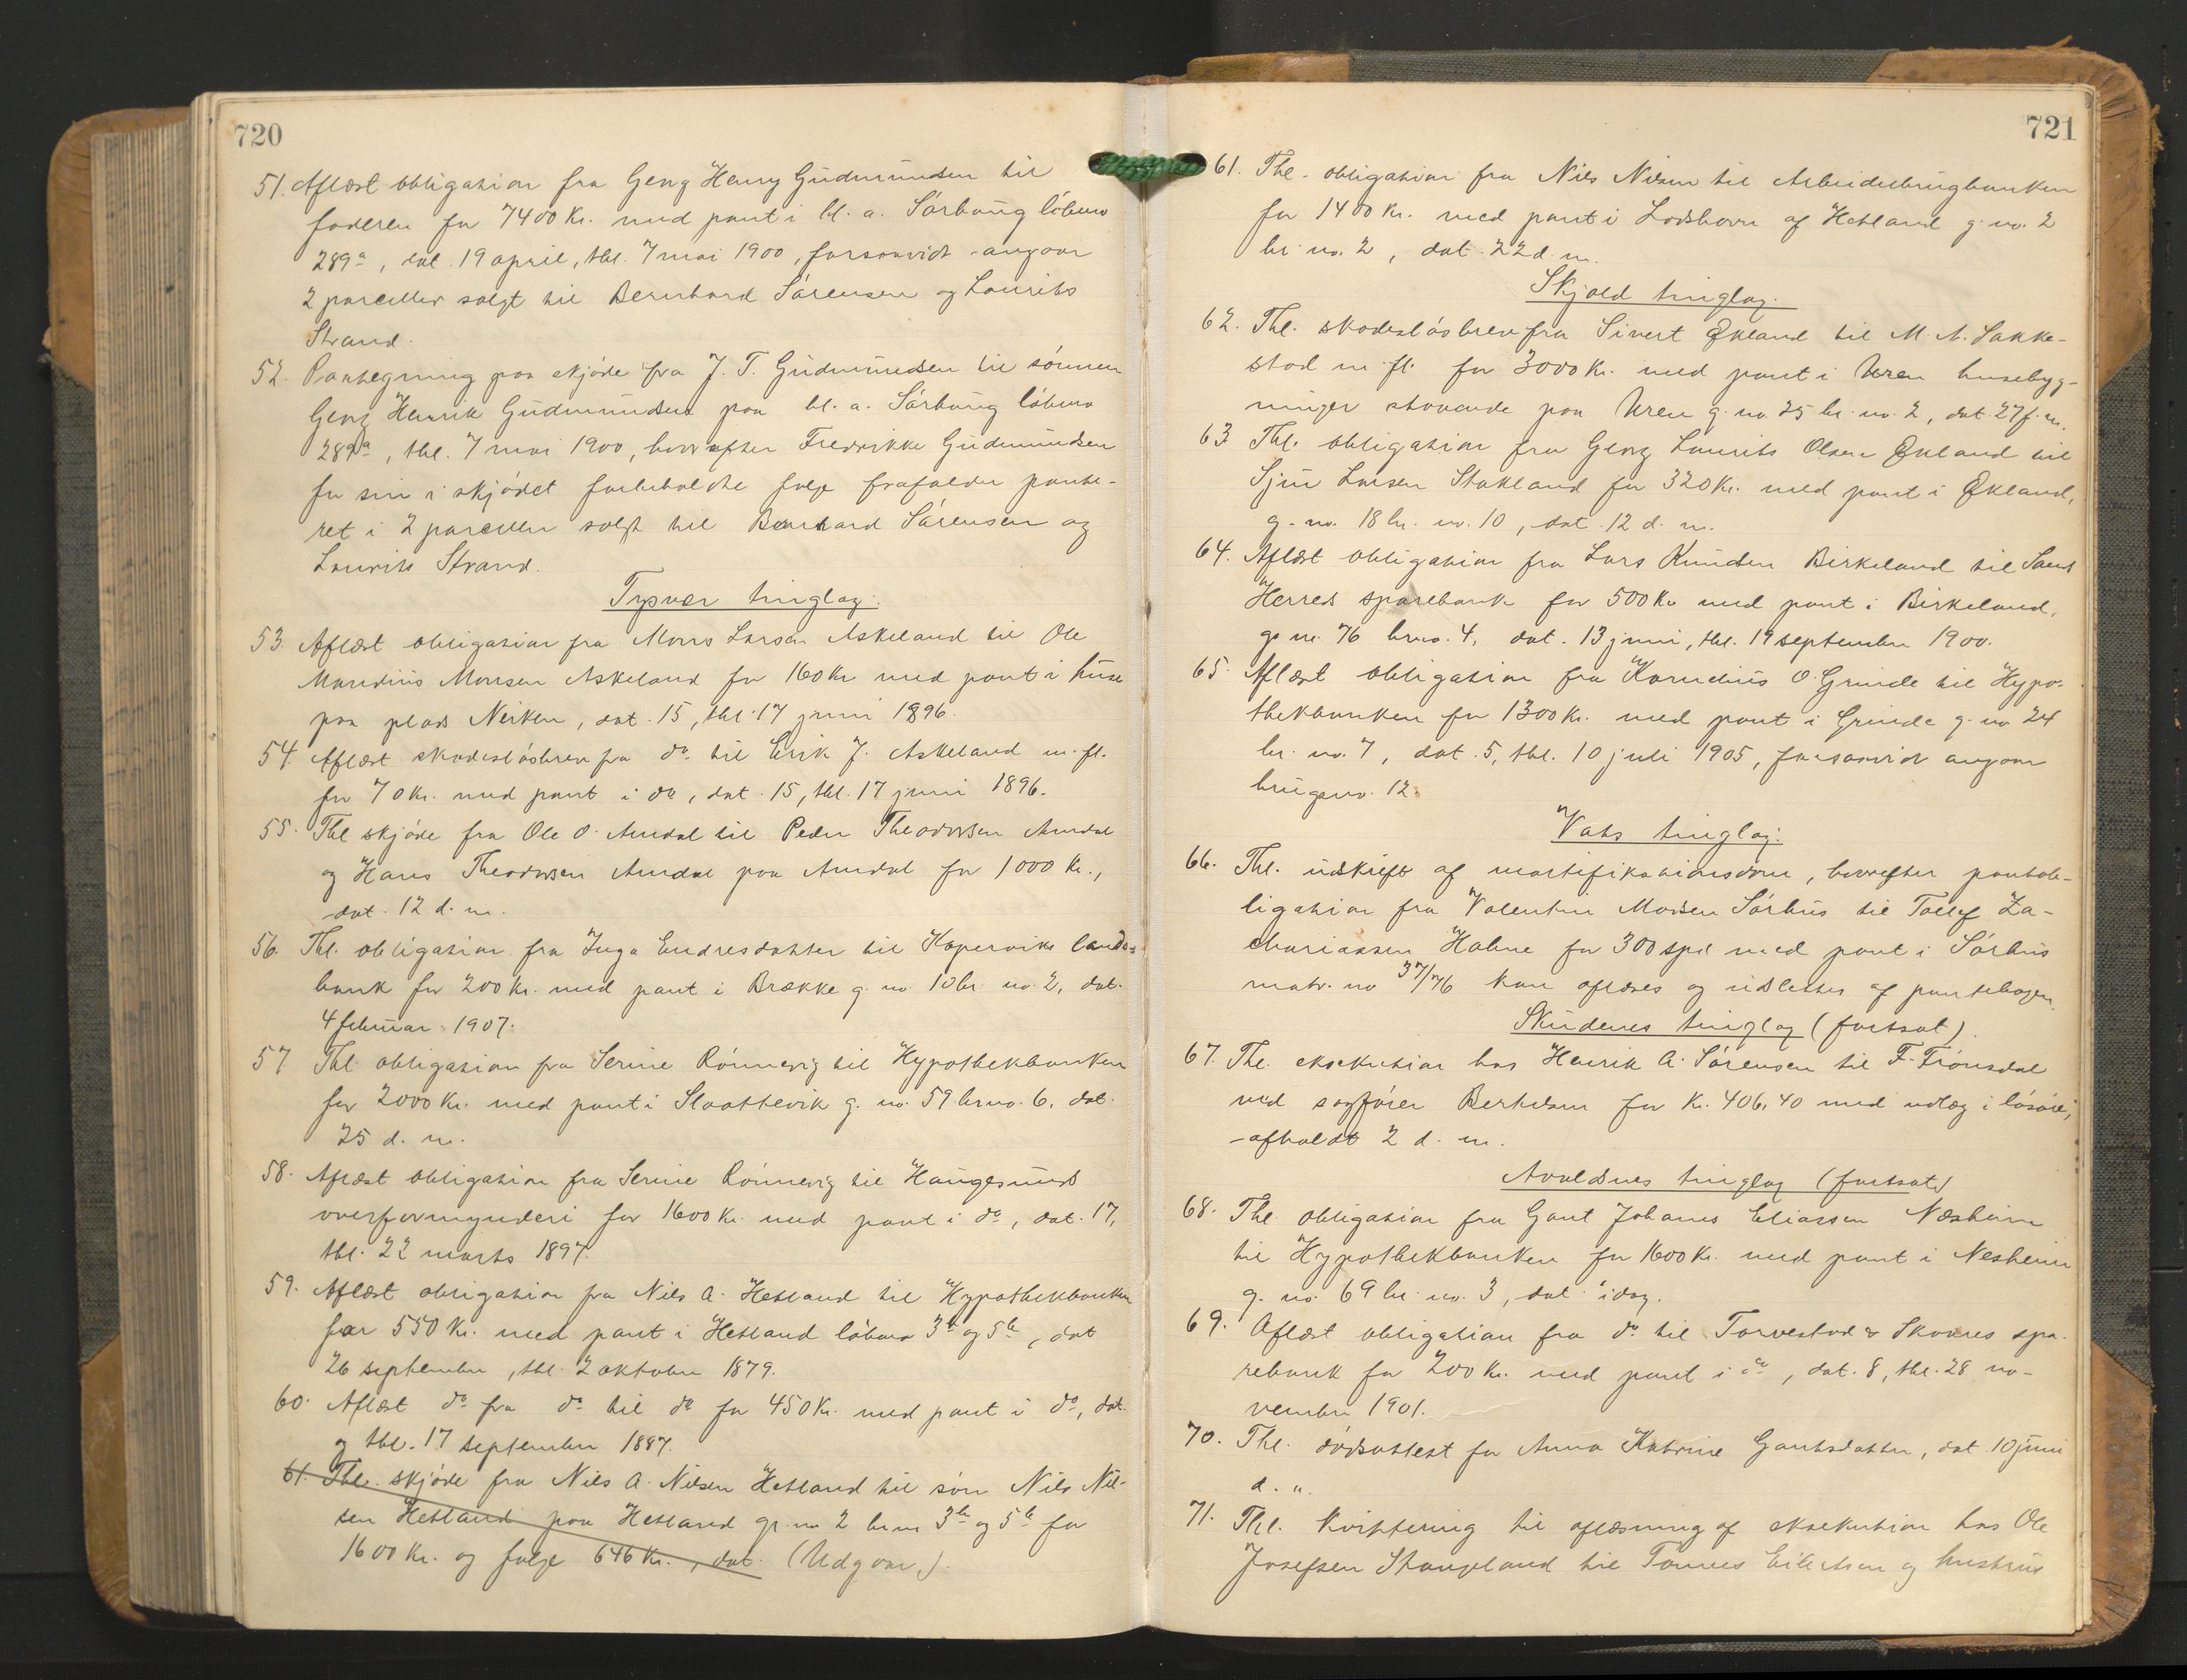 720
51. Aflæst obligation fra Georg Henry Gudmundsen til
faderen for 7400 Kr. med pant i bl. a. Sørhaug løbeno
289a, dat. 19 april, thl. 7 mai 1900, forsaavidt angaar
2 parceller solgt til Bernhard Sørensen og Laurits
Strand.
52. Paategning paa skjøde fra J. T. Gudmundsen til sønnen
Georg Henrik Gudmundsen paa bl. a. Sørhaug løbeno
289a, thl. 7 mai 1900, hvorefter Fredrikke Gudmundsen
for sin i skjødet forbeholdte følge frafalder pante-
ret i 2 parceller solgt til Bernhard Sørensen og
Laurits Strand.
Tysvær tinglag.
53. Aflæst obligation fra Mons Larsen Askeland til Ole
Mondius Monsen Askeland for 160 Kr med pant i huse
paa plads Neiken, dat. 15, thl. 17 juni 1896.
54. Aflæst skadesløsbrev fra do til Erik J. Askeland m. fl.
for 70 Kr. med pant i do, dat. 15, thl. 17 juni 1896.
55. Thl skjøde fra Ole O. Amdal til Peder Theodorsen Amdal
og Hans Theodorsen Amdal paa Amdal for 1000 Kr.,
dat. 12 d. m.
56. Thl. obligation fra Inga Endresdatter til Koperviks lands-
bank for 200 Kr. med pant i Brække g. no 10 br. no. 2, dat.
4 februar 1907.
57 Thl. obligation fra Serine Rønnevig til Hypothekbanken
for 2000 Kr. med pant i Slaattevik g. no. 59 br no. 6, dat.
25 d. m.
58. Aflæst obligation fra Serine Rønnevig til Haugesunds
overformynderi for 1600 Kr. med pant i do, dat. 17,
thl. 22 marts 1897.
59. Aflæst obligation fra Nils A. Hetland til Hypothekbanken
for 550 Kr. med pant i Hetland løbeno 3b og 5b, dat
26 september, thl. 2 oktober 1879.
60. Aflæst do fra do til do for 450 Kr. med pant i do, dat.
og thl. 17 september 1887.
61. Thl. skjøde fra Nils A. Nilsen Hetland til søn Nils Nil-
sen Hetland paa Hetland gr. no 2 br no 3b og 5b for
1600 Kr. og følge 646 Kr., dat. (Udgaar).
721
61. Thl. obligation fra Nils Nilsen til Arbeiderbrugbanken
for 1400 Kr. med pant i Lodshavn af Hetland g. no. 2
br. no. 2, dat. 22 d. m.
Skjold tinglag.
62. Thl. skadesløsbrev fra Sivert Økland til M. A. Lakke-
stad m. fl. for 3000 Kr. med pant i Uren husebyg-
ninger staaende paa Uren g. no 25 br. no. 2, dat. 27 f. m.
63. Thl. obligation fra Georg Laurits Olsen Økland til
Sjur Larsen Stakland for 320 Kr. med pant i Økland,
g. no. 18 br. no. 10, dat. 12 d. m.
64. Aflæst obligation fra Lars Knudsen Birkeland til Sønd
Herreds sparebank for 500 Kr med pant i Birkeland,
g. no. 76 br no. 4, dat. 13 juni, thl. 19 september 1900.
65. Aflæst obligation fra Kornelius O. Grinde til Hypo-
thekbanken for 1300 Kr. med pant i Grinde g. no 24
br. no. 7, dat. 5, thl. 10 juli 1905, forsaavidt angaar
brugsno. 12.
Vats tinglag.
66. Thl. udskrift af mortifikationsdom, hvorefter pantob-
ligation fra Valentin Madsen Sørhus til Tollef Za-
chariassen Halne for 300 spd med pant i Sørhus
matr. no 37/76 kan aflæses og udslettes af pantebogen.
Skudenes tinglag (fortsat).
67. Thl. eksekution hos Henrik A. Sørensen til F. Fronsdal
ved sagfører Bertelsen for Kr. 406,40 med udlæg i løsøre,
afholdt 2 d. m.
Avaldsnes tinglag (fortsat)
68. Thl obligation fra Gaut Johannes Eliassen Næsheim
til Hypothekbanken for 1600 Kr. med pant i Nesheim
g. no. 69 br. no. 3, dat. idag.
69. Aflæst obligation fra do til Torvestad & Skaares spa-
rebank for 200 Kr. med pant i do, dat. 8, thl. 28 no-
vember 1901.
70. Thl. dødsattest for Anna Katrine Gautsdatter, dat 10 juni
d. a.
71. Thl. kvittering til aflæsning af eksekution hos Ole
Josefsen Stangeland til Tønnes Eilertsen og hustrus